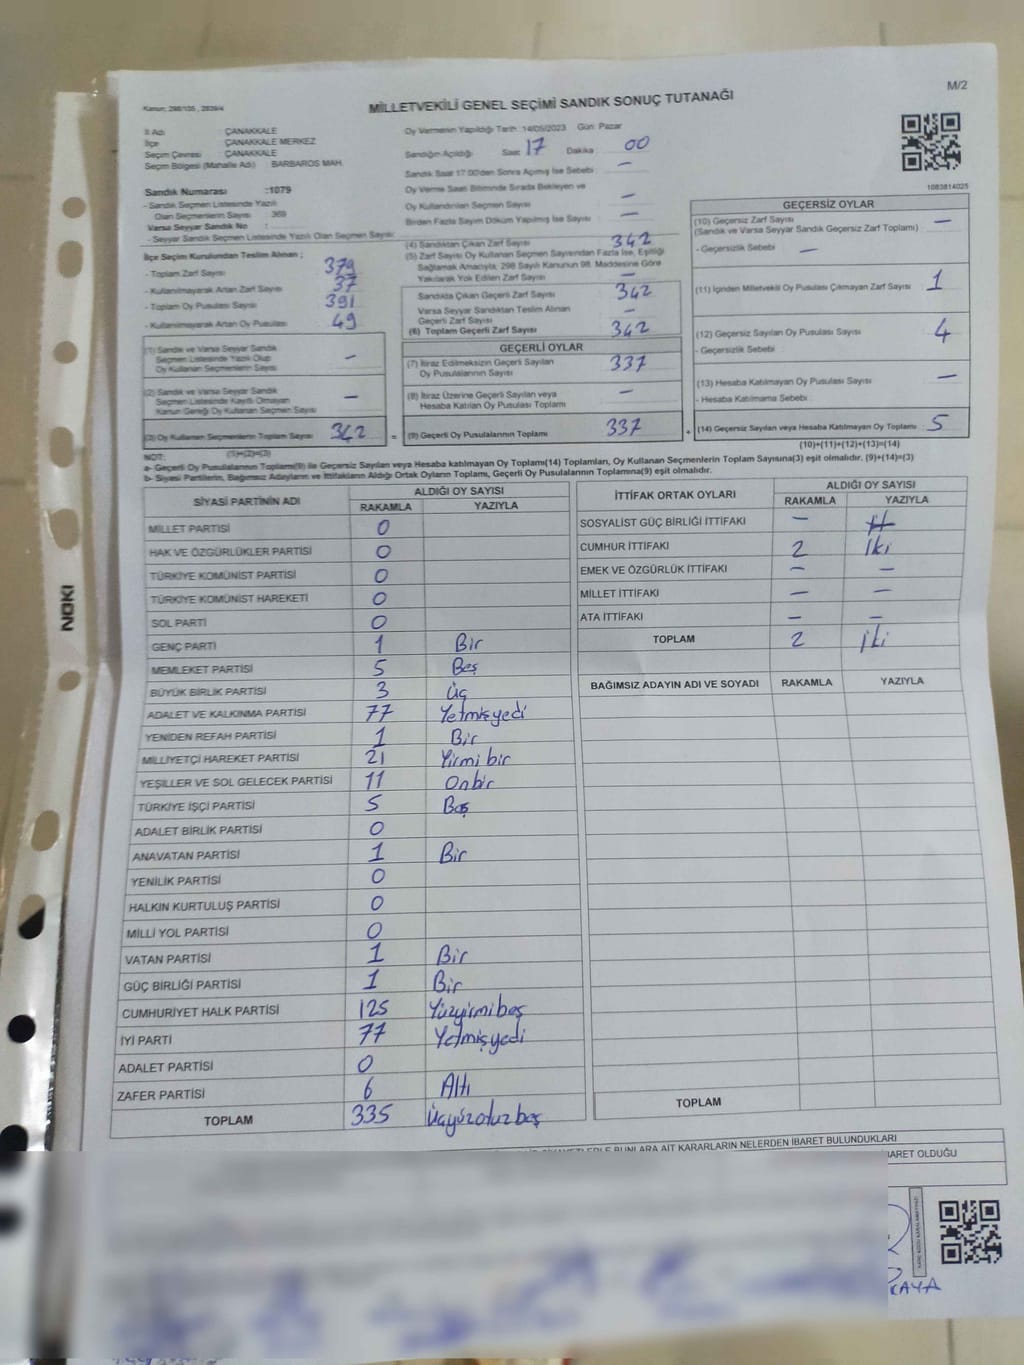 M/2
Kanun: 298/105 , 2839/4
MİLLETVEKİLİ GENEL SEÇİMİ SANDIK SONUÇ TUTANAĞI
İl Adı : ÇANAKKALE
İlçe : ÇANAKKALE MERKEZ
Seçim Çevresi : ÇANAKKALE
Seçim Bölgesi (Mahalle Adı) : BARBAROS MAH.
Sandık Numarası :1079
- Sandık Seçmen Listesinde Yazılı
Olan Seçmenlerin Sayısı : 369
Varsa Seyyar Sandık No :
- Seyyar Sandık Seçmen Listesinde Yazılı Olan Seçmen Sayısı:
İlçe Seçim Kurulundan Teslim Alınan ;
- Toplam Zarf Sayısı 379
- Kullanılmayarak Artan Zarf Sayısı 37
- Toplam Oy Pusulası Sayısı 391
- Kullanılmayarak Artan Oy Pusulası 49
(1) Sandık ve Varsa Seyyar Sandık
Seçmen Listesinde Yazılı Olup
Oy Kullanan Seçmenlerin Sayısı –
(2) Sandık ve Varsa Seyyar Sandık
Seçmen Listesinde Kayıtlı Olmayan
Kanun Gereği Oy Kullanan Seçmen Sayısı –
(3) Oy Kullanan Seçmenlerin Toplam Sayısı 342
(1)+(2)=(3)
Oy Vermenin Yapıldığı Tarih :14/05/2023 Gün: Pazar
Sandığın Açıldığı Saat 17 Dakika 00
Sandık Saat 17:00'den Sonra Açılmış İse Sebebi : –
Oy Verme Saati Bitiminde Sırada Bekleyen ve
Oy Kullandırılan Seçmen Sayısı –
Birden Fazla Sayım Döküm Yapılmış İse Sayısı –
(4) Sandıktan Çıkan Zarf Sayısı 342
(5) Zarf Sayısı Oy Kullanan Seçmen Sayısından Fazla İse, Eşitliği
Sağlamak Amacıyla, 298 Sayılı Kanunun 98. Maddesine Göre
Yakılarak Yok Edilen Zarf Sayısı –
Sandıkta Çıkan Geçerli Zarf Sayısı 342
Varsa Seyyar Sandıktan Teslim Alınan
Geçerli Zarf Sayısı –
(6) Toplam Geçerli Zarf Sayısı 342
GEÇERLİ OYLAR
(7) İtiraz Edilmeksizin Geçerli Sayılan
Oy Pusulalarının Sayısı 337
(8) İtiraz Üzerine Geçerli Sayılan veya
Hesaba Katılan Oy Pusulası Toplamı –
= (9) Geçerli Oy Pusulalarının Toplamı 337 +
1083814025
GEÇERSİZ OYLAR
(10) Geçersiz Zarf Sayısı –
(Sandık ve Varsa Seyyar Sandık Geçersiz Zarf Toplamı)
- Geçersizlik Sebebi –
(11) İçinden Milletvekili Oy Pusulası Çıkmayan Zarf Sayısı 1
(12) Geçersiz Sayılan Oy Pusulası Sayısı 4
- Geçersizlik Sebebi :
(13) Hesaba Katılmayan Oy Pusulası Sayısı –
- Hesaba Katılmama Sebebi :
(14) Geçersiz Sayılan veya Hesaba Katılmayan Oy Toplamı : 5
(10)+(11)+(12)+(13)=(14)
NOT:
a- Geçerli Oy Pusulalarının Toplamı(9) ile Geçersiz Sayılan veya Hesaba katılmayan Oy Toplamı(14) Toplamları, Oy Kullanan Seçmenlerin Toplam Sayısına(3) eşit olmalıdır. (9)+(14)=(3)
b- Siyasi Partilerin, Bağımsız Adayların ve İttifakların Aldığı Ortak Oyların Toplamı, Geçerli Oy Pusulalarının Toplamına(9) eşit olmalıdır.
SİYASİ PARTİNİN ADI ALDIĞI OY SAYISI
RAKAMLA YAZIYLA
MİLLET PARTİSİ 0
HAK VE ÖZGÜRLÜKLER PARTİSİ 0
TÜRKİYE KOMÜNİST PARTİSİ 0
TÜRKİYE KOMÜNİST HAREKETİ 0
SOL PARTİ 0
GENÇ PARTİ 1 Bir
MEMLEKET PARTİSİ 5 Beş
BÜYÜK BİRLİK PARTİSİ 3 Üç
ADALET VE KALKINMA PARTİSİ 77 Yetmişyedi
YENİDEN REFAH PARTİSİ 1 Bir
MİLLİYETÇİ HAREKET PARTİSİ 21 Yirmi bir
YEŞİLLER VE SOL GELECEK PARTİSİ 11 Onbir
TÜRKİYE İŞÇİ PARTİSİ 5 Beş
ADALET BİRLİK PARTİSİ 0
ANAVATAN PARTİSİ 1 Bir
YENİLİK PARTİSİ 0
HALKIN KURTULUŞ PARTİSİ 0
MİLLİ YOL PARTİSİ 0
VATAN PARTİSİ 1 Bir
GÜÇ BİRLİĞİ PARTİSİ 1 Bir
CUMHURİYET HALK PARTİSİ 125 Yüzyirmibeş
İYİ PARTİ 77 Yetmişyedi
ADALET PARTİSİ 0
ZAFER PARTİSİ 6 Altı
TOPLAM 335 Üçyüzotuzbeş
İTTİFAK ORTAK OYLARI ALDIĞI OY SAYISI
RAKAMLA YAZIYLA
SOSYALİST GÜÇ BİRLİĞİ İTTİFAKI –
CUMHUR İTTİFAKI 2 İki
EMEK VE ÖZGÜRLÜK İTTİFAKI – –
MİLLET İTTİFAKI – –
ATA İTTİFAKI – –
TOPLAM 2 İki
BAĞIMSIZ ADAYIN ADI VE SOYADI RAKAMLA YAZIYLA
TOPLAM
BUNLARA AİT KARARLARIN NELERDEN İBARET BULUNDUKLARI
İBARET OLDUĞU
KAYA
NOKI